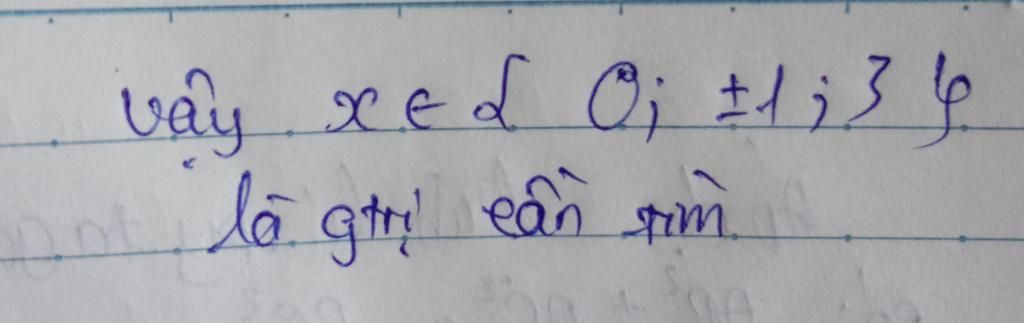 vậy x ∈ { 0; ±1; 3 }
là gtrị cần tìm